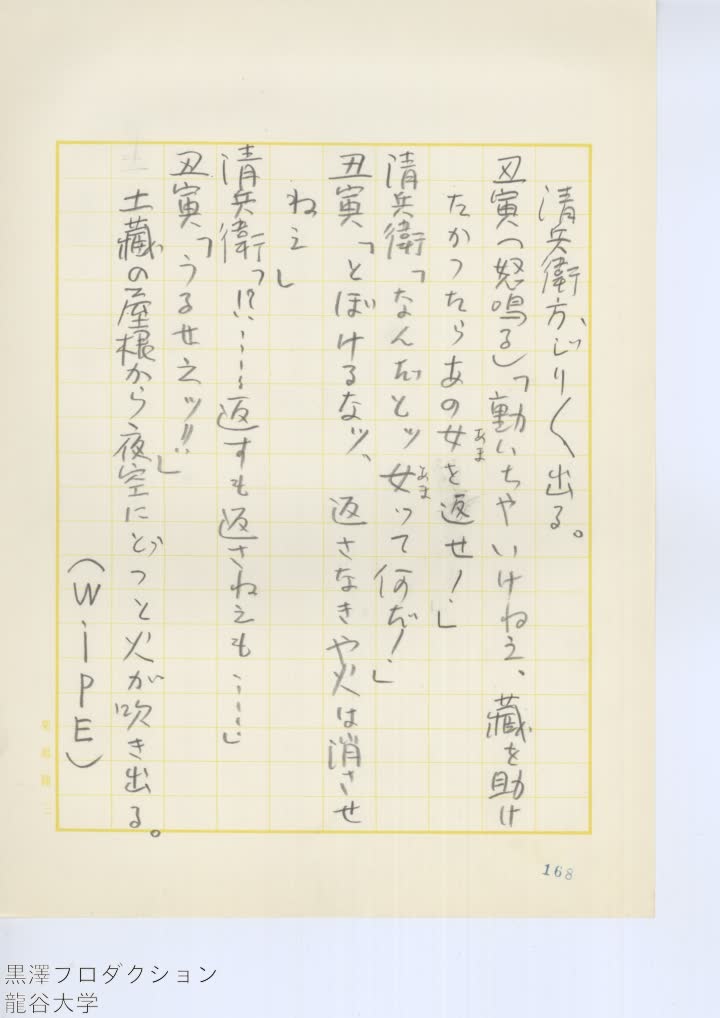 清兵衛方、じり〱出る。
丑寅（怒鳴る）「動いちやいけねえ、藏を助け
たかつたらあの女を返せ！」
あま
清兵衛「なんだとッ、女って何だ！」
あま
丑寅「とぼけるなッ、返さなきや火は消させ
ねえ」
清兵衛「⁉……返すも返さねえも……」
丑寅「うるせえッ‼」
土藏の屋根から夜空にどつと火が吹き出る。
（WiPE）
168
黒澤プロダクション
龍谷大学